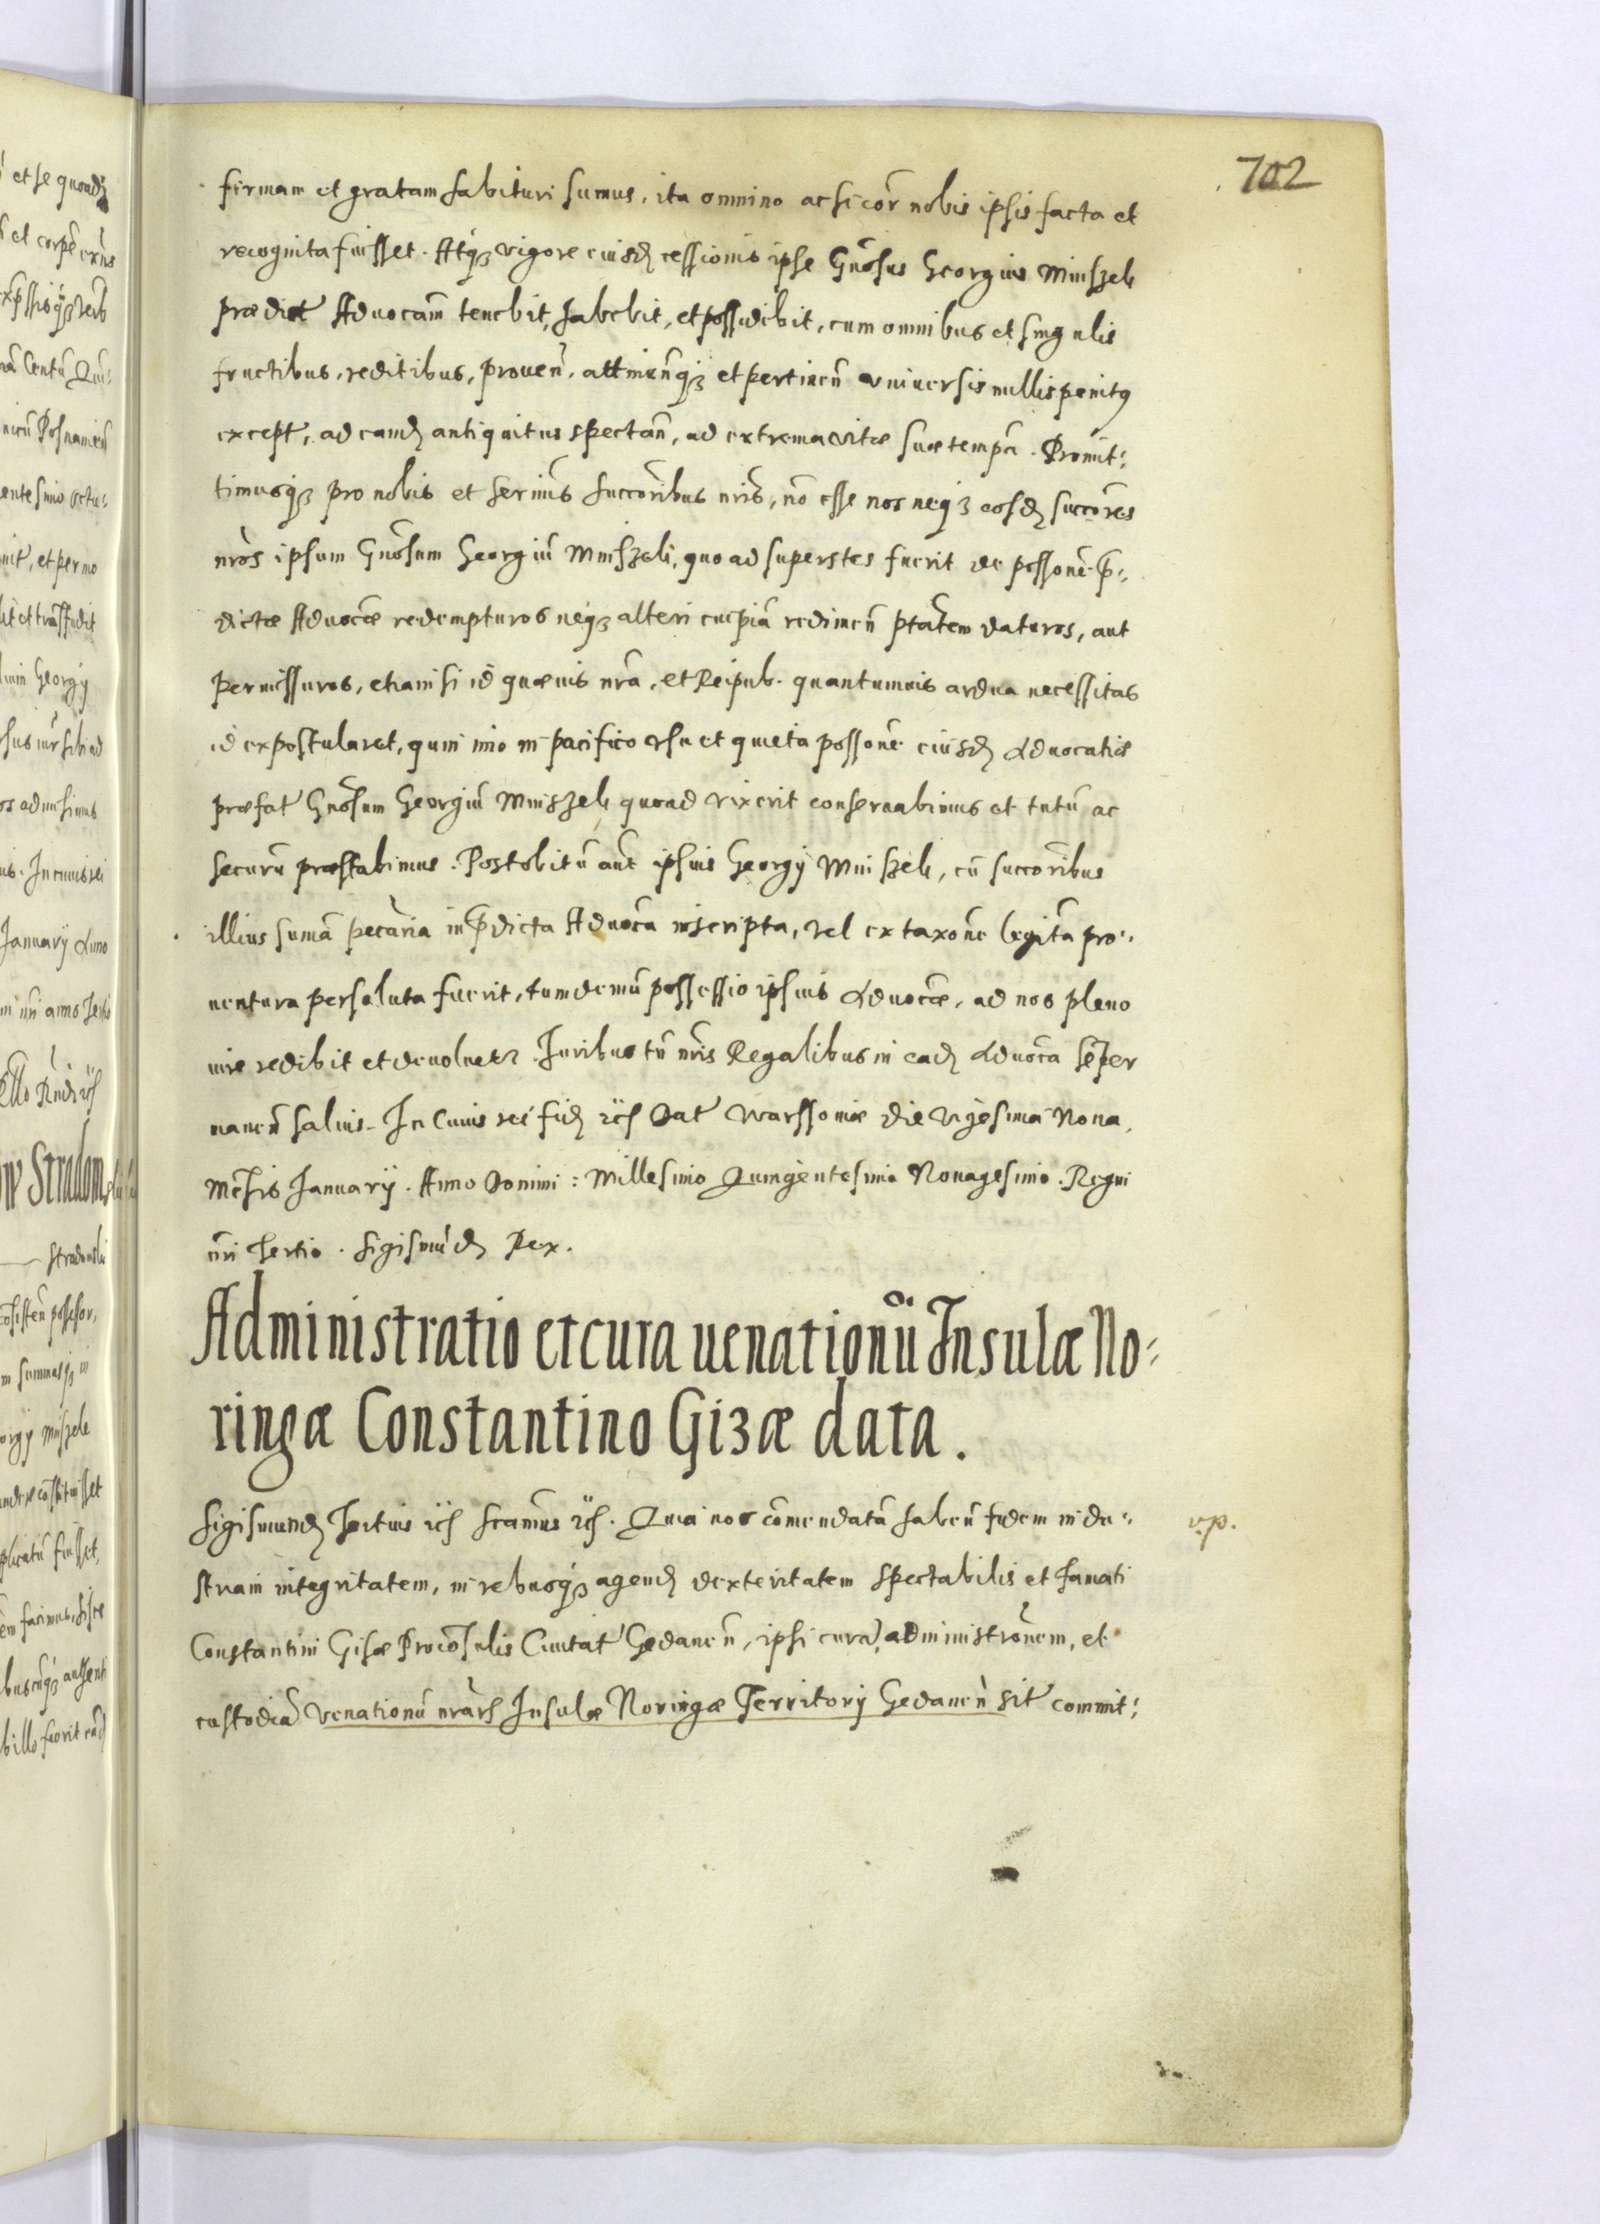 702
firmam et gratam habituri sumus, ita omnino ac si cor̃ nobis ipsis facta et
recognita fuisset. Atq3 vigore eiusd cessionis ipse Gnõsus Georgius Mniszek
prædict Aduocãm tenebit, habebit, et possidebit, cum omnibus et singulis
fructibus, reditibus, prouen̄, attinen̄q3 et pertinen̄ vniuersis nullis penitus
except, ad eand antiquitus spectan̄, ad extrema vitæ suæ tempã. Promit:
timusq3 pro nobis et serimis succõribus nris, nõ esse nos neq3 eosd succores
nrõs ipsum Gnõsum Georgiũ Mniszek, quoad superstes fuerit de possonẽ p̃:
dictæ Aduocẽæ redempturos neq3 alteri cuipiã redimen̄ ptãtem daturos, aut
permissuros, etiamsi id quæuis nrã, et Reipub. quantumuis ardua necessitas
id expostularet, quin imo in pacifico vsu et quieta possonẽ eiusd Aduocatiæ
præfat Gnõsum Georgiũ Mniszek quoad vixerit conseruabimus et tutũ ac
securũ præstabimus. Post obitũ aũt ipsius Georgij Mniszek, cũ succõribus
illius sumã pecãria in p̃dicta Aduocã inscripta, vel ex taxonẽ legitã pro:
uentura persoluta fuerit, tum demũ possessio ipsius Aduocẽæ, ad nos pleno
iure redibit et deuoluetr. Juribus tñ nris Regalibus in ead Aduocã semper
manen̄ saluis. In Cuius rei fid etc Dat Warssouiæ die Vigesima Nona,
Mensis Januarij. Anno Domini: Millesimo Quingentesimo Nonagesimo. Regni
nri Tertio. Sigismũd Rex.
Administratio et cura uenationũ Insulæ No:
ringæ Constantino Gizæ data.
Sigismund Tertius etc scamus etc. Quia nos cõmendatã haben̄ fidem indu:
striam integritatem, in rebusq3 agend dexteritatem Spectabilis et famati
Constantini Gisæ Procõsulis Ciuitat Gedanen̄, ipsi curã, administrõnem, et
custodiã venationũ nrãrũ Insulæ Noringæ Territorij Gedanen̄ sit commit:
v.p.